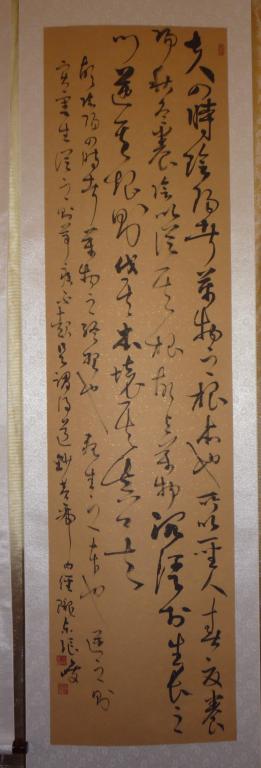 夫四時陰陽者萬物之根本也所以聖人春夏養
陽秋冬養陰以從其根故與萬物沉浮於生長之
門逆其根則伐其本壞其真矣
故陰陽四時者萬物之終始也死生之本也逆之則
災害生從之則苛疾不起是謂得道 黃帝內經